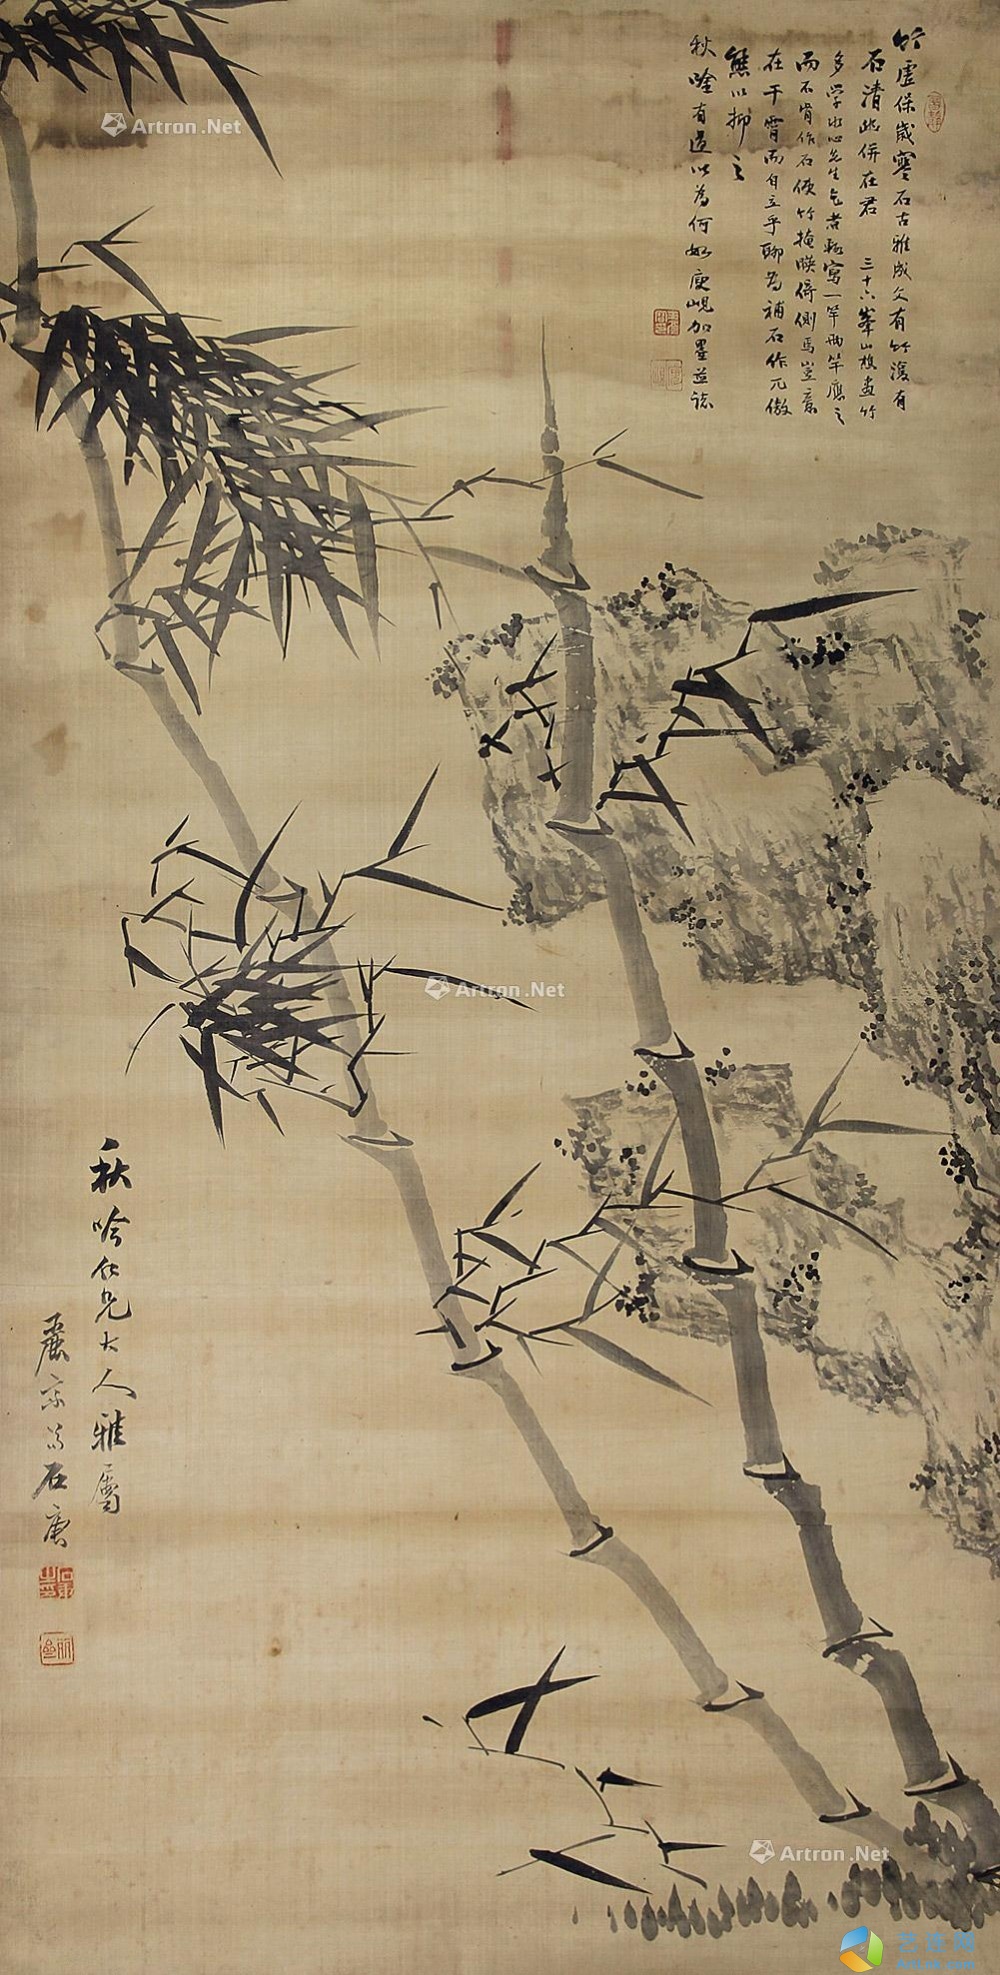 竹虚保岁寒石古雅成文有竹复有
石清此併在君 三十六峯山樵画竹
多学冰心先生乞者輒寫一竿两竿應之
而不肯作石使竹掩映倚侧焉豈意
在干霄而自立乎聊为補石作兀傲
態以抑之
秋唫有道以為何如 庾峴加墨並誌
秋吟仁兄大人雅屬
石庚
Artron.Net
Artron.Net
Artron.Net